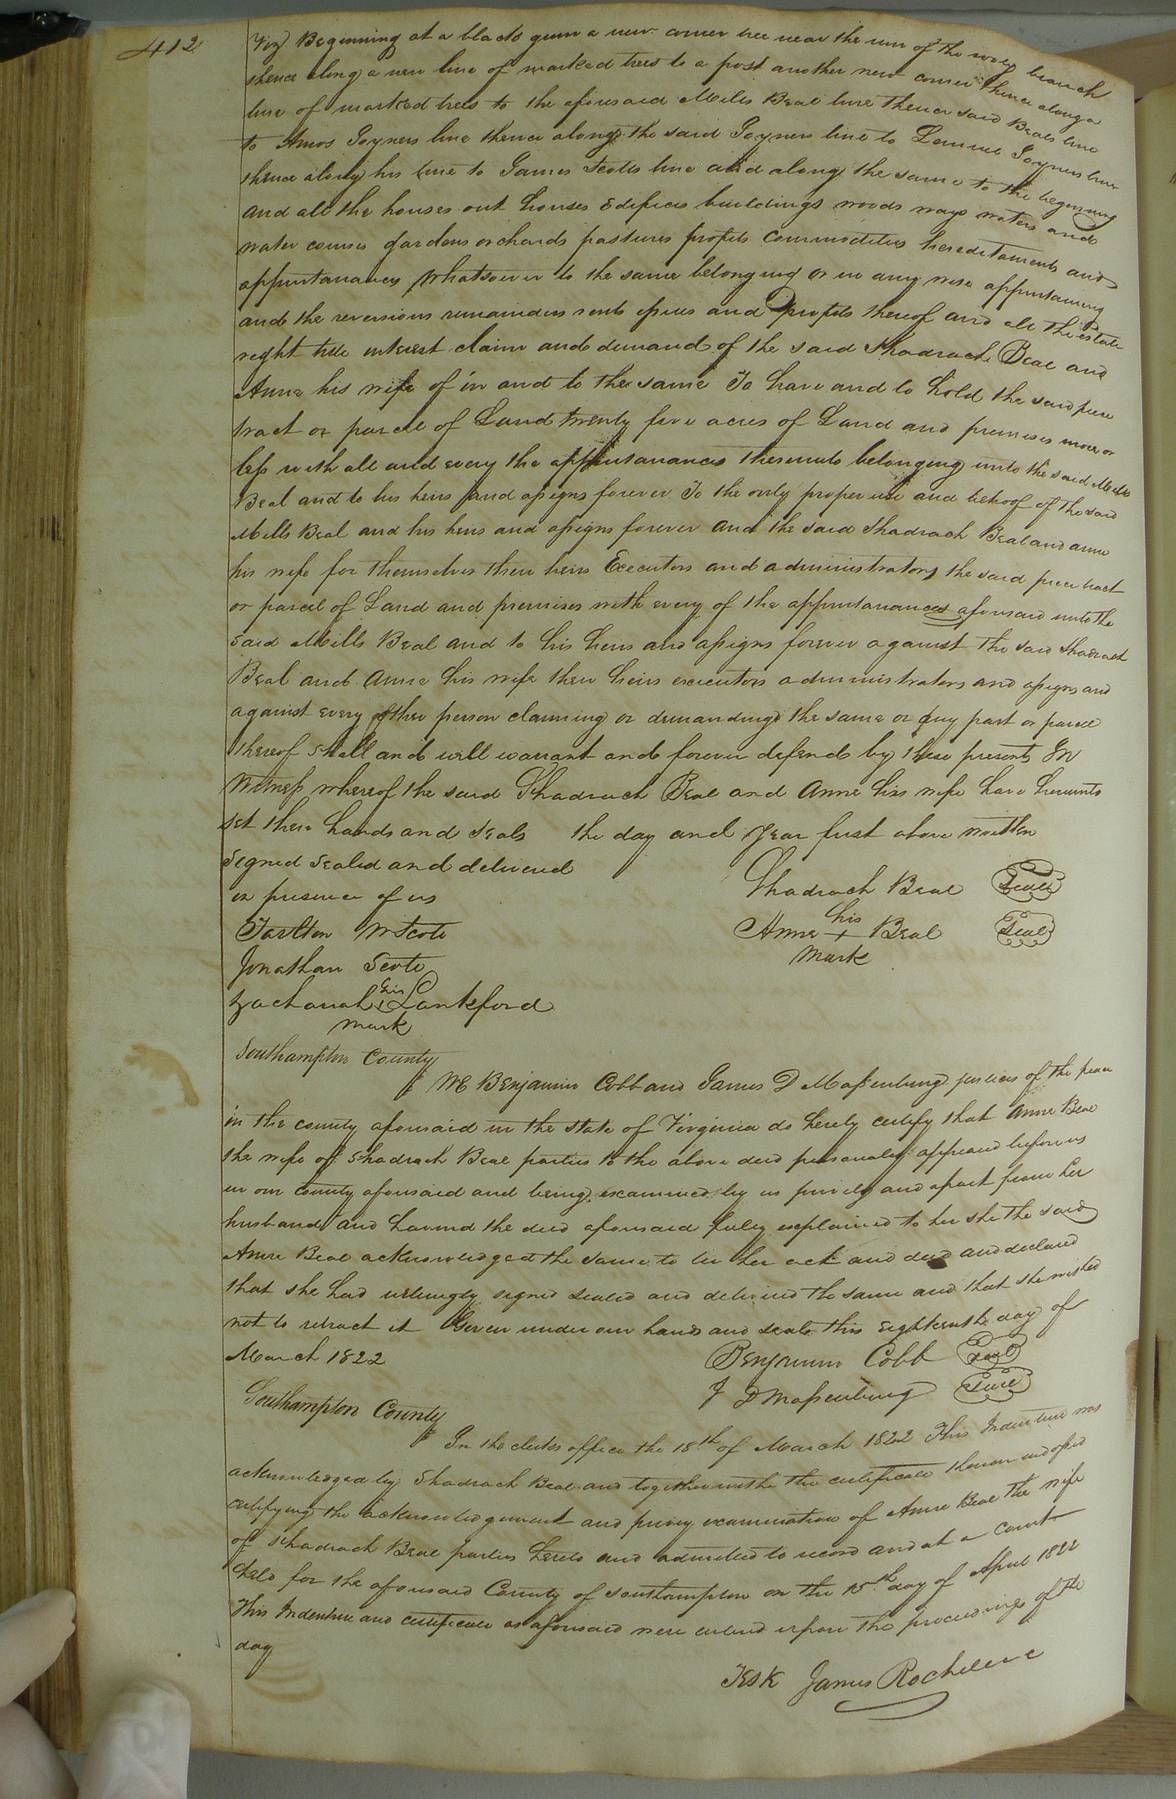 412
Viz Beginning at a black gum a new corner tree near the run of the branch
thence along a new line of marked trees to a post another new corner thence along a
line of marked trees to the aforesaid Mills Beal line thence said Beals line
to Amos Joyners line thence along the said Joyners line to Lemuel Joyners line
thence along his line to James Scotts line and along the same to the beginning
and all the houses out houses Edifices buildings woods ways waters and
water courses gardens orchards pastures profits commodities hereditaments and
appurtanances whatsoever to the same belonging or in any wise appurtaining
and the reversions remainders rents issues and profits thereof and all the estate
right title interest claim and demand of the said Shadrach Beal and
Anne his wife of in and to the same To have and to hold the said piece
tract or parcel of Land twenty five acres of Land and premises more or
less with all and every the appurtanances thereunto belonging unto the said Mills
Beal and to his heirs and assigns forever To the only proper use and behoof of the said
Mills Beal and his heirs and assigns forever and the said Shadrach Beal and anne
his wife for themselves their heirs Executors and administrators the said piece tract
or parcel of Land and premises with every of the appurtanances aforesaid unto the
said Mills Beal and to his heirs and assigns forever against the said Shadrach
Beal and Anne his wife their heirs executors administrators and assigns and
against every other person claiming or demanding the same or any part or parcel
thereof shall and will warrant and forever defend by these presents In
Witness whereof the said Shadrach Beal and Anne his wife have hereunto
set their hands and seals the day and year first above written
Signed Sealed and delivered
in presence of us
Shadrach Beal Seal
Tarlton W Scott
Anne his + Beal Seal
mark
Jonathan Scott
Zachariah his Lankford
mark
Southampton County
We Benjamin Cobb and James D Massenburg justices of the peace
in the county aforesaid in the state of Virginia do hereby certify that Anne Beal
the wife of Shadrach Beal parties to the above deed personally appeared before us
in our county aforesaid and being examined by us privily and apart from her
husband and having the deed aforesaid fully explained to her she the said
Anne Beal acknowledged the same to be her act and deed and declared
that she had willingly signed sealed and delivered the same and that she wished
not to retract it Given under our hands and seals this Eighteenth day of
March 1822
Benjamin Cobb Seal
J D Massenburg Seal
Southampton County
In the clerks office the 18th of March 1822 This Indenture was
acknowledged by Shadrach Beal and together with the certificate thereon endorsed
certifying the acknowledgement and privy examination of Anne Beal the wife
of Shadrach Beal parties hereto and admitted to record and at a Court
held for the aforesaid County of Southampton on the 15th day of April 1822
This Indenture and certificate as aforesaid were entered upon the proceedings of the
day
Teste James Rochelle